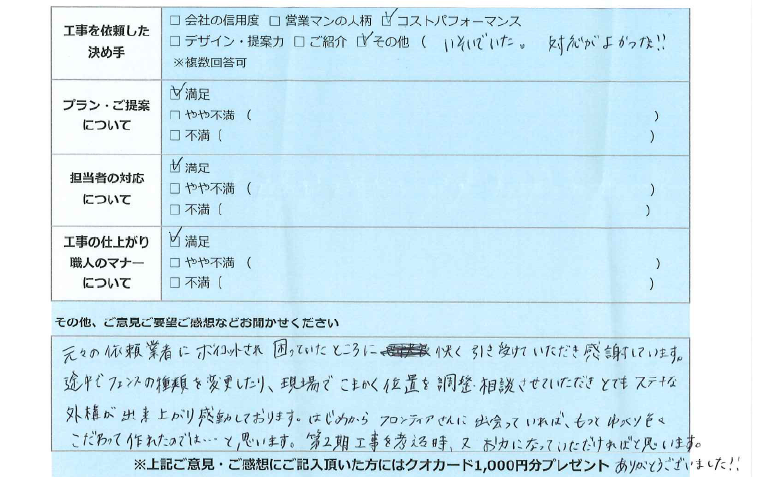 工事を依頼した
決め手
□ 会社の信用度 □ 営業マンの人柄 ☑ コストパフォーマンス
□ デザイン・提案力 □ ご紹介 ☑ その他 ( いそいでいた。 対応がよかった!!
※複数回答可
プラン・ご提案
について
☑ 満足
□ やや不満 ( )
□ 不満 ( )
担当者の対応
について
☑ 満足
□ やや不満 ( )
□ 不満 ( )
工事の仕上がり
職人のマナー
について
☑ 満足
□ やや不満 ( )
□ 不満 ( )
その他、ご意見ご要望ご感想などお聞かせください
元々の依頼業者にボイコットされ 困っていたところに 快く 引き受けていただき 感謝しています。
途中でフェンスの種類を変更したり、現場で こまかく 位置を 調整・相談させていただき とても ステキな
外構が 出来上がり 感動しております。はじめから フロンティアさんに 出会っていれば、もっと ゆっくり 色々
こだわって 作れたのでは…と 思います。第2期工事を考える時、又 お力になっていただければと思います。
※上記ご意見・ご感想にご記入頂いた方にはクオカード1,000円分プレゼント ありがとうございました!!